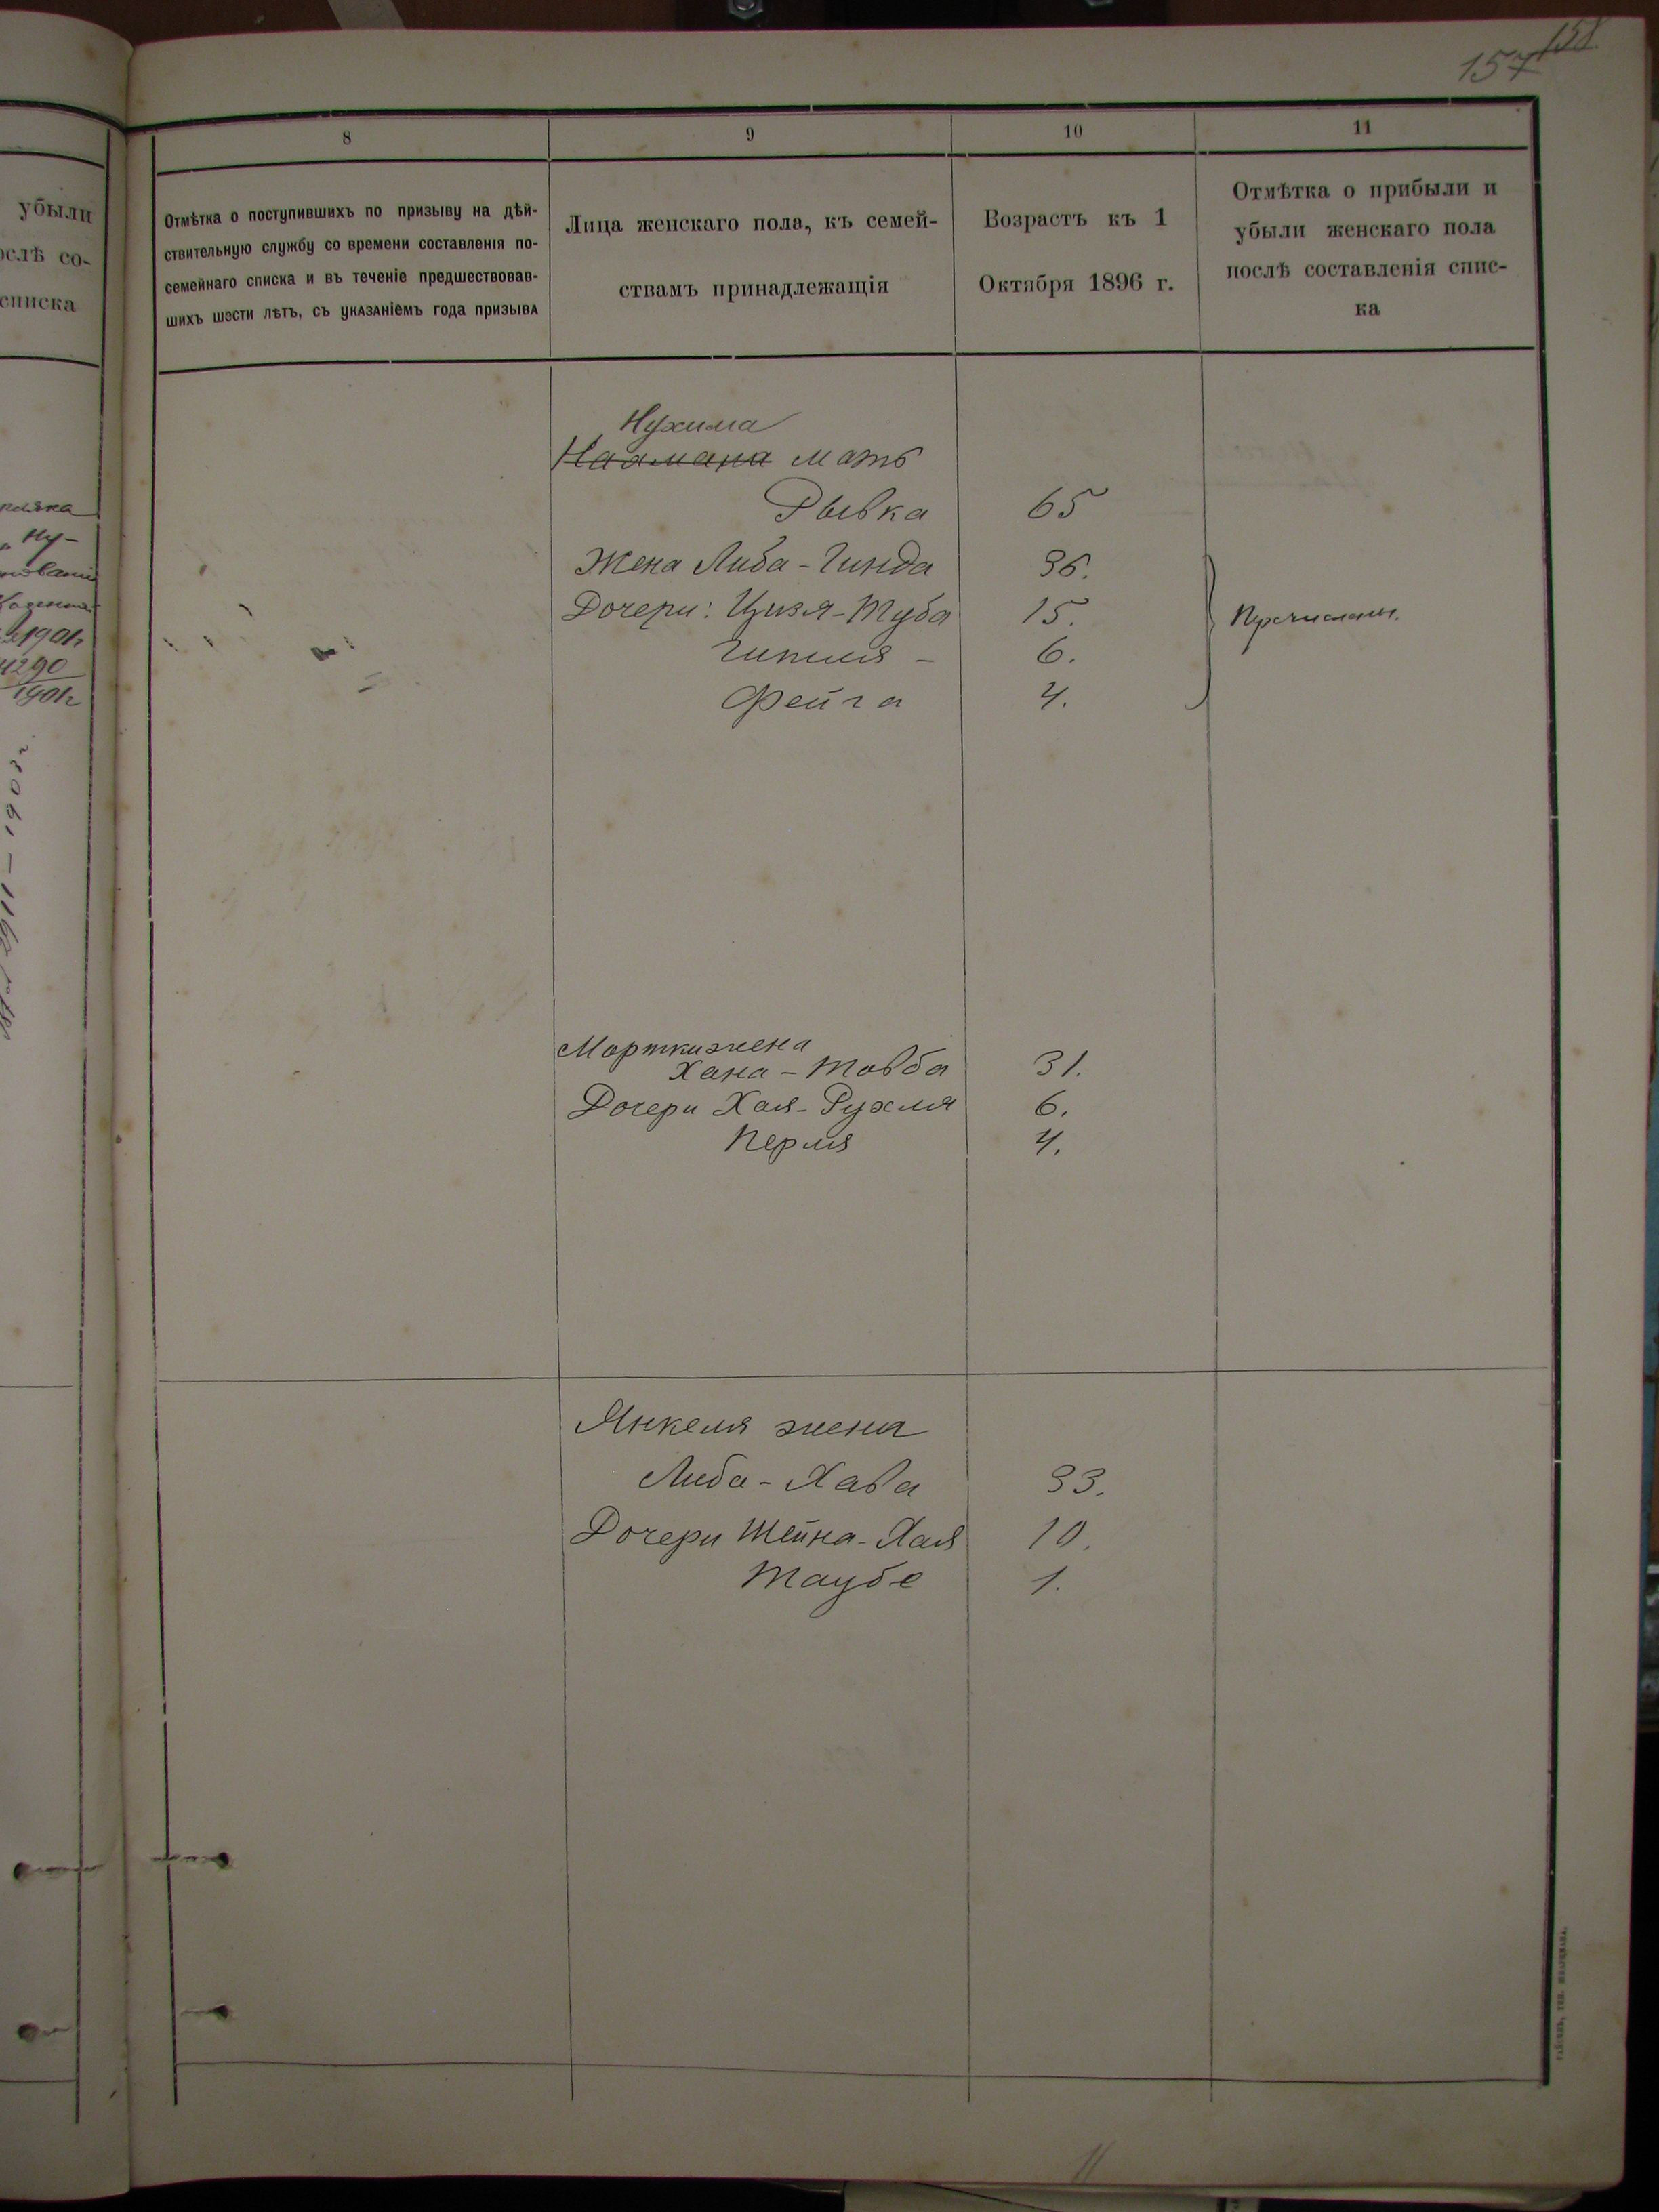 158
157
8
9
10
11
Отмѣтка о поступившихъ по призыву на дѣй-
ствительную службу со времени составленія по-
семейнаго списка и въ теченіе предшествовав-
шихъ шести лѣтъ, съ указаніемъ года призыва
Лица женскаго пола, къ семей-
ствамъ принадлежащія
Возрастъ къ 1
Октября 1896 г.
Отмѣтка о прибыли и
убыли женскаго пола
послѣ составленія спис-
ка
убыли
ослѣ со-
списка
Ну-
1901г
4290
1901г
Нухима
Наамана мать
Рывка 65
Жена Либа-Гинда 36.
Дочери: Цизя-Туба 15.
Гитля - 6.
Фейга 4.
Пречислены.
Мортки жена
Хана-Товба 31.
Дочери Хая-Рухля 6.
Перля 4.
Янкеля жена
Либа-Хава 33.
Дочери Шейна-Хая 10.
Таубе 1.